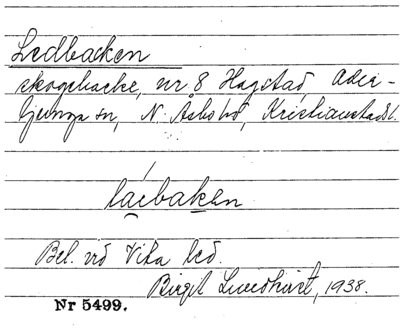 Ledbacken
skogsbacke, nr 8 Hagstad, Ader-
ljunga sn, N. Åsbo hd, Kristianstads l.
laebaken
Bel. vid Vika led.
Birgit Lundhqvist, 1938.
Nr 5499.